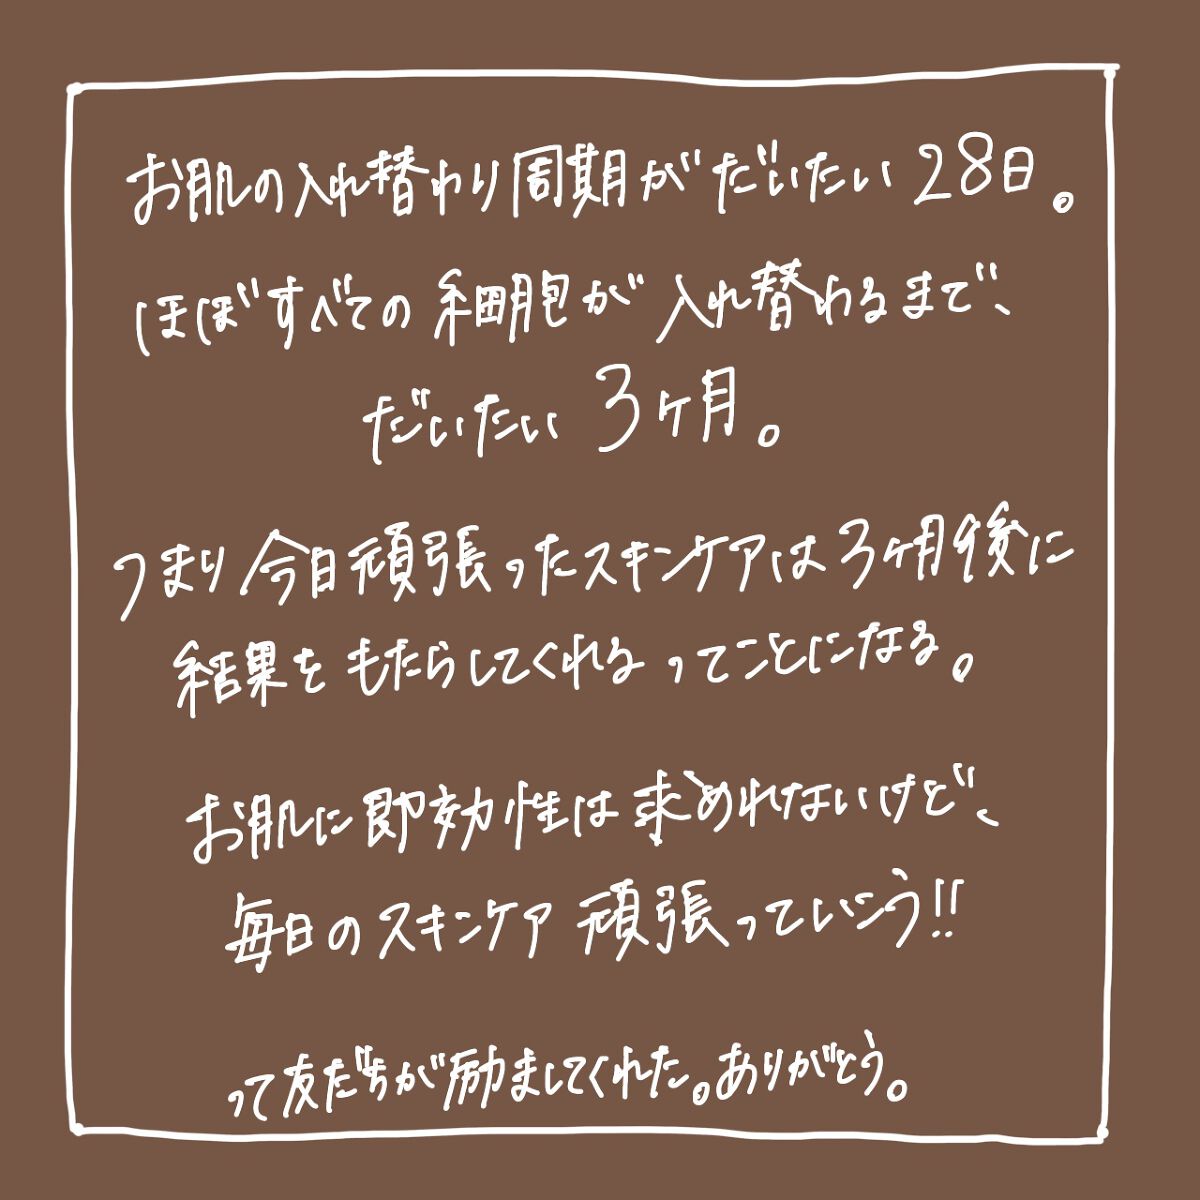 お肌の入れ替わり周期がだいたい28日。
ほぼすべての細胞が入れ替わるまで、
だいたい3ヶ月。
つまり今日頑張ったスキンケアは3ヶ月後に
結果をもたらしてくれるってことになる。
お肌に即効性は求めれないけど、
毎日のスキンケア頑張っていこう!!
って友だちが励ましてくれた。ありがとう。